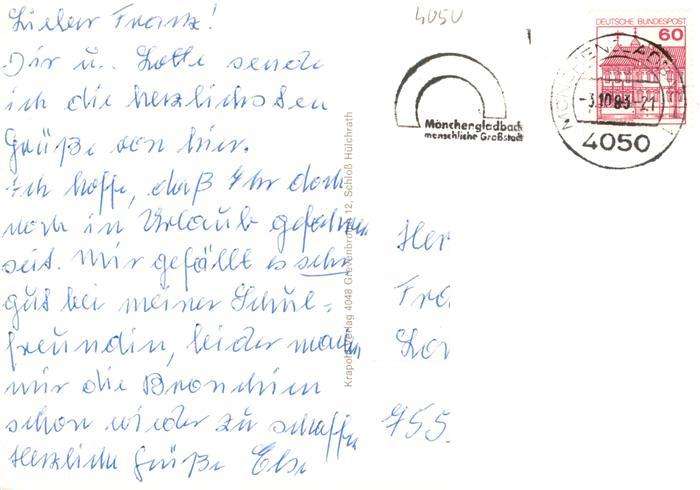 4050
Lieber Franz!
Dir u. Lotte sende
ich die herzlichsten
Grüße von hier.
Ich hoffe, daß Ihr doch
noch in Urlaub gefahren
seit. Mir gefällt es sehr
gut bei meiner Schul-
freundin, leider machen
mir die Bronchien
schon wieder zu schaffen
Herzliche Grüße Else
Krapohl-Verlag 4048 Grevenbroich 12, Schloß Hülchrath
Mönchengladbach
menschliche Großstadt
DEUTSCHE BUNDESPOST
60
-3.10.83-21
4050
Her
Fra
755